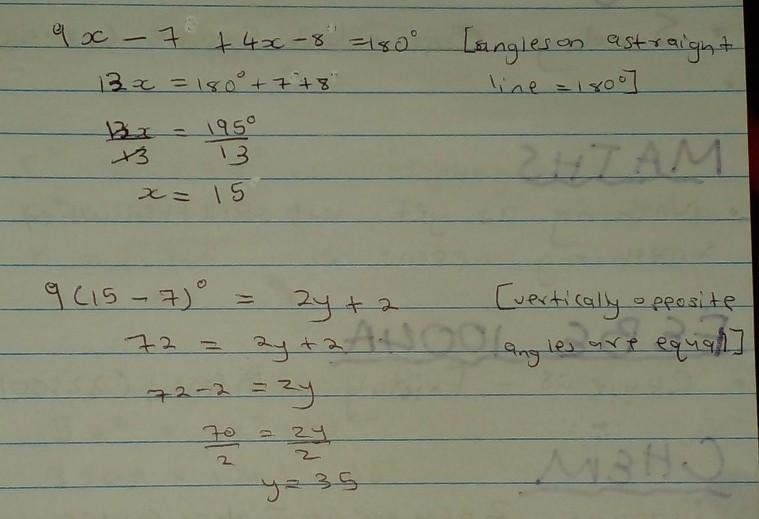 9x - 7° + 4x - 8° = 180° [angles on a straight
13x = 180° + 7° + 8° line = 180°]
13x/13 = 195°/13
x = 15
MATHS
9(15 - 7)° = 2y + 2 [vertically opposite
72 = 2y + 2 angles are equal]
72 - 2 = 2y
70/2 = 2y/2
CHEM
y = 35